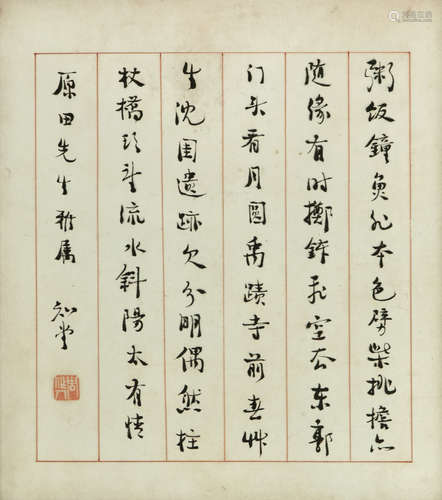 粥飯鐘魚非本色劈柴挑擔亦
随緣有时擲鉢飛空去东郭
门头看月圓禹蹟寺前春艸
生沈園遺跡欠分明偶然拄
杖橋头望流水斜陽太有情
原田先生雅属 知堂